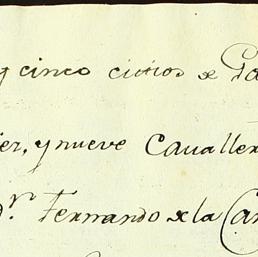 y cinco citios de Ga
er, y nueve Cavaller
dn. Fernando de la Can